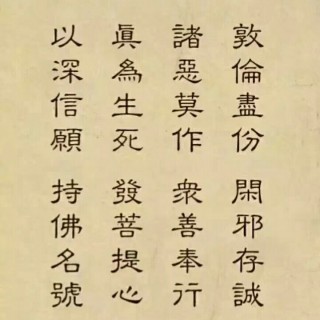 敦倫盡份 閑邪存誠
諸惡莫作 衆善奉行
眞為生死 發菩提心
以深信願 持佛名號